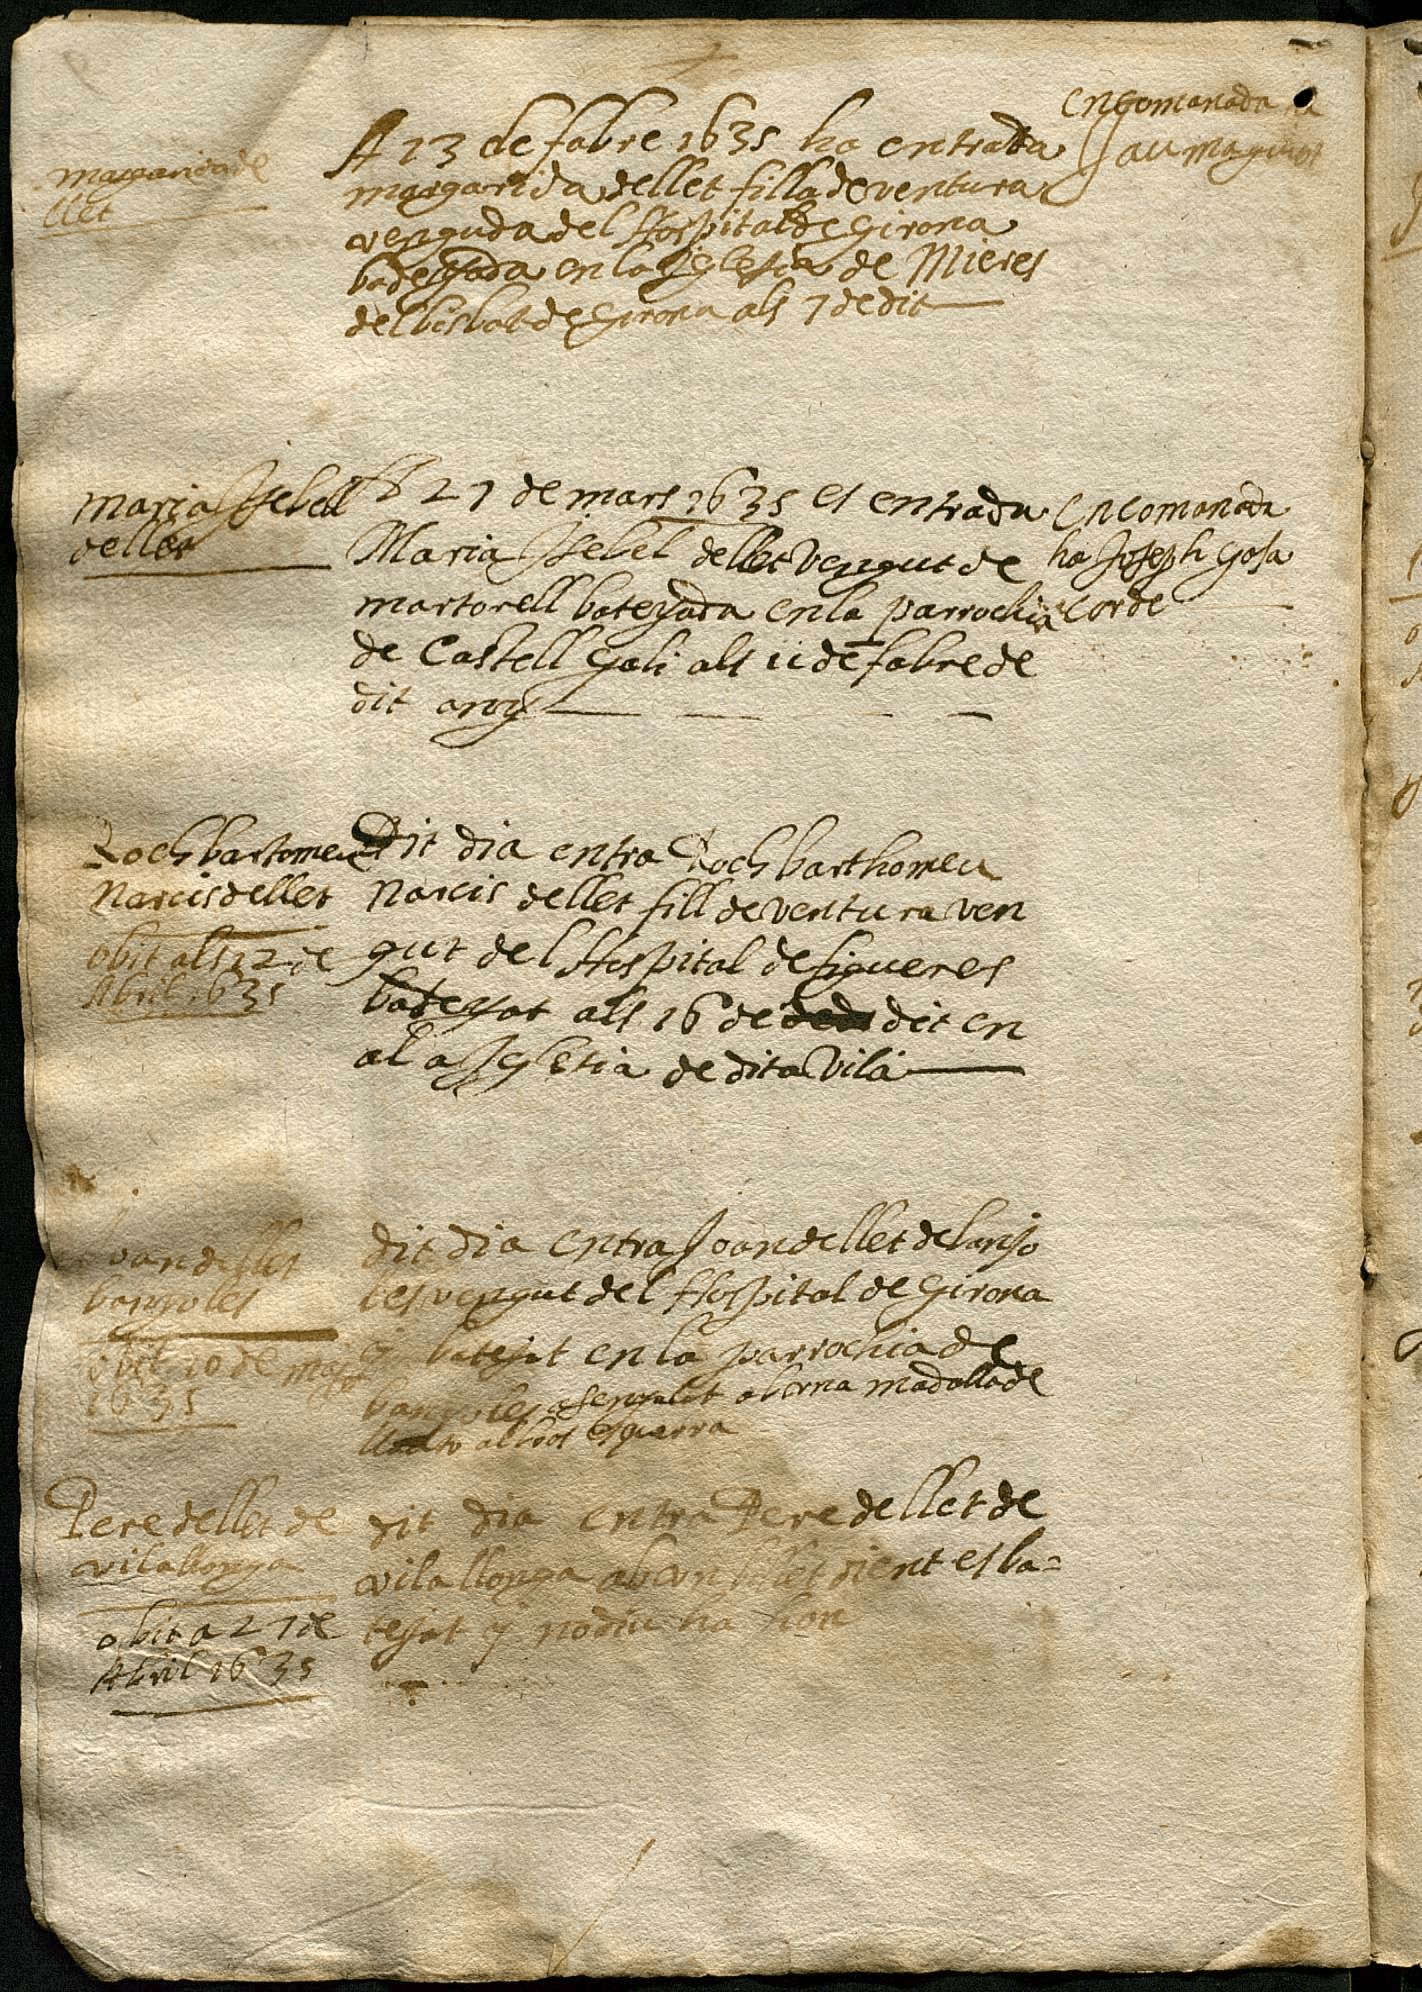 margarida de
llet
A 13 de fabre 1635 ha entrada
margarida dellet filla de ventura
venguda del Hospital de Girona
badejada en la Iglesia de Mieres
del bisbat de Girona als 7 de dit
encomanada
Jaumaguint
Maria Isebell
dellet
A 21 de mars 1635 es entrada
Maria Isebel dellet vengut de
martorell batejada en la parrochia
de Castell gali als 11 de fabre de
dit any
encomanada
ha Joseph gosa
corde
Roch bartomeu
Narcis dellet
obit als 12 de
Abril 1635
Dit dia entra Roch barthomeu
Narcis dellet fill de ventura ven
gut del Hospital de figueres
batejat als 16 de dit en
al a Iglesia de dita Vila
Joan dellet
banyoles
obit 10 de maig
1635
dit dia entra Joan dellet de banyo
les vengut del Hospital de Girona
es batejat en la parrochia de
banyoles asenyalat ab una madalla de
al bras esquerra
Pere dellet de
vilallonga
obit a 21 de
Abril 1635
dit dia entra Pere dellet de
vilallonga ab un billet dient es ba=
tejat y no diu ha hon